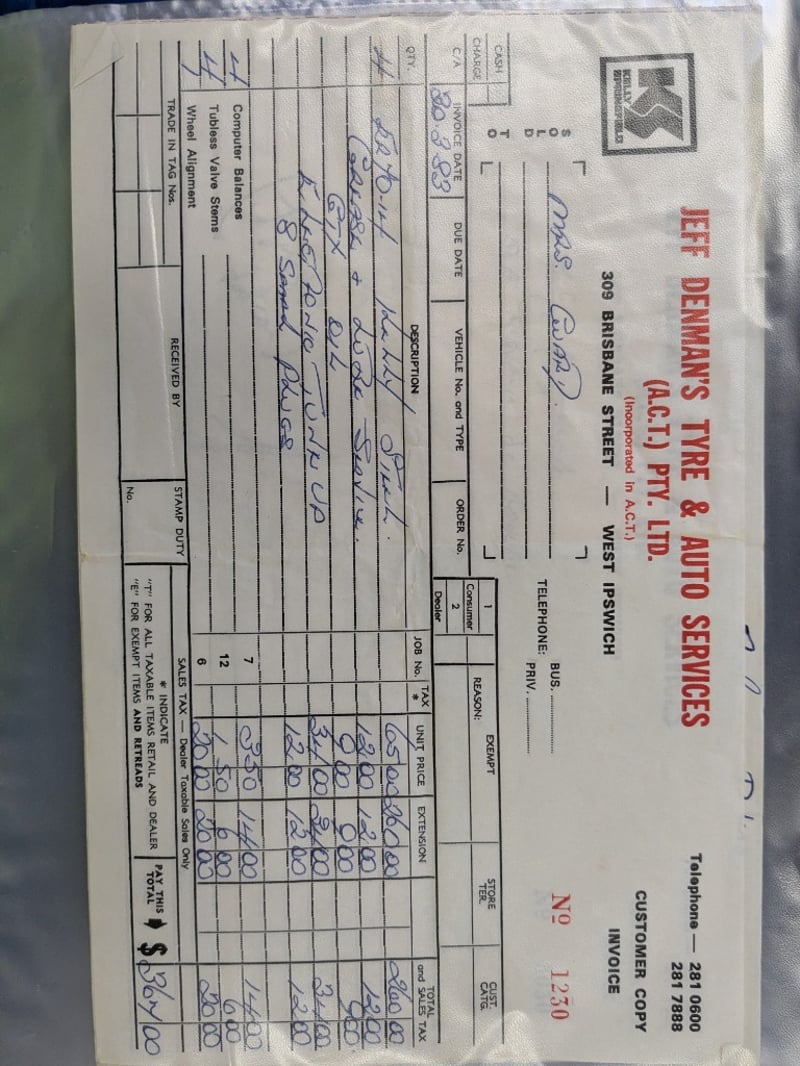 KS
KELLY
SPRINGFIELD
JEFF DENMAN'S TYRE & AUTO SERVICES
(A.C.T.) PTY. LTD.
(Incorporated in A.C.T.)
309 BRISBANE STREET — WEST IPSWICH
Telephone — 281 0600
281 7888
CUSTOMER COPY
INVOICE
No 1230
SOLD
TO
MRS.
TELEPHONE: BUS.
PRIV.
CASH
CHARGE
1 Consumer
2 Dealer
EXEMPT
REASON:
STORE TER.
CUST. CATG.
C/A INVOICE DATE DUE DATE VEHICLE No. and TYPE ORDER No.
30 3 83
QTY. DESCRIPTION JOB No. TAX * UNIT PRICE EXTENSION TOTAL and SALES TAX
4 ER70-14 Kelly Steel. 65 00 260 00 260 00
Grease & Lube Service. 12 00 12 00 12 00
GTX OIL 9 00 9 00 9 00
ELECTRONIC TUNE UP 34 00 34 00 34 00
8 Spark PLUGS 12 00 12 00 12 00
4 Computer Balances 7 3 50 14 00 14 00
4 Tubless Valve Stems 12 1 50 6 00 6 00
1 Wheel Alignment 6 20 00 20 00 20 00
TRADE IN TAG Nos. RECEIVED BY STAMP DUTY SALES TAX — Dealer Taxable Sales Only
No.
* INDICATE
"T" FOR ALL TAXABLE ITEMS RETAIL AND DEALER
"E" FOR EXEMPT ITEMS AND RETREADS
PAY THIS TOTAL $ 367/00